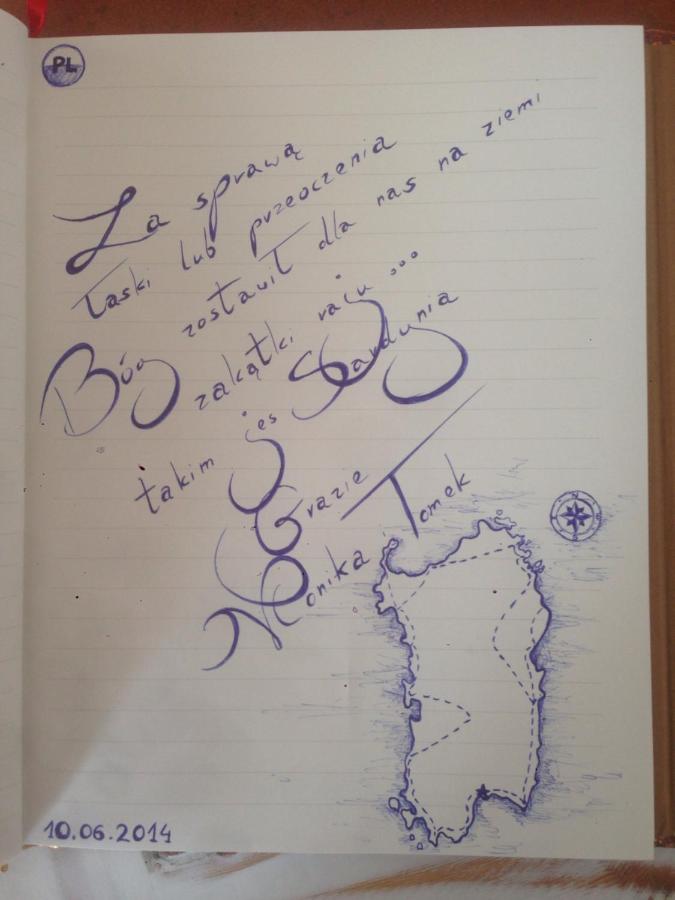 PL
Za sprawą
łaski lub przeoczenia
Bóg zostawił dla nas na ziemi
zakątki raju...
takim jes Sardynia
Grazie
Monika, Tomek
N
10.06.2014